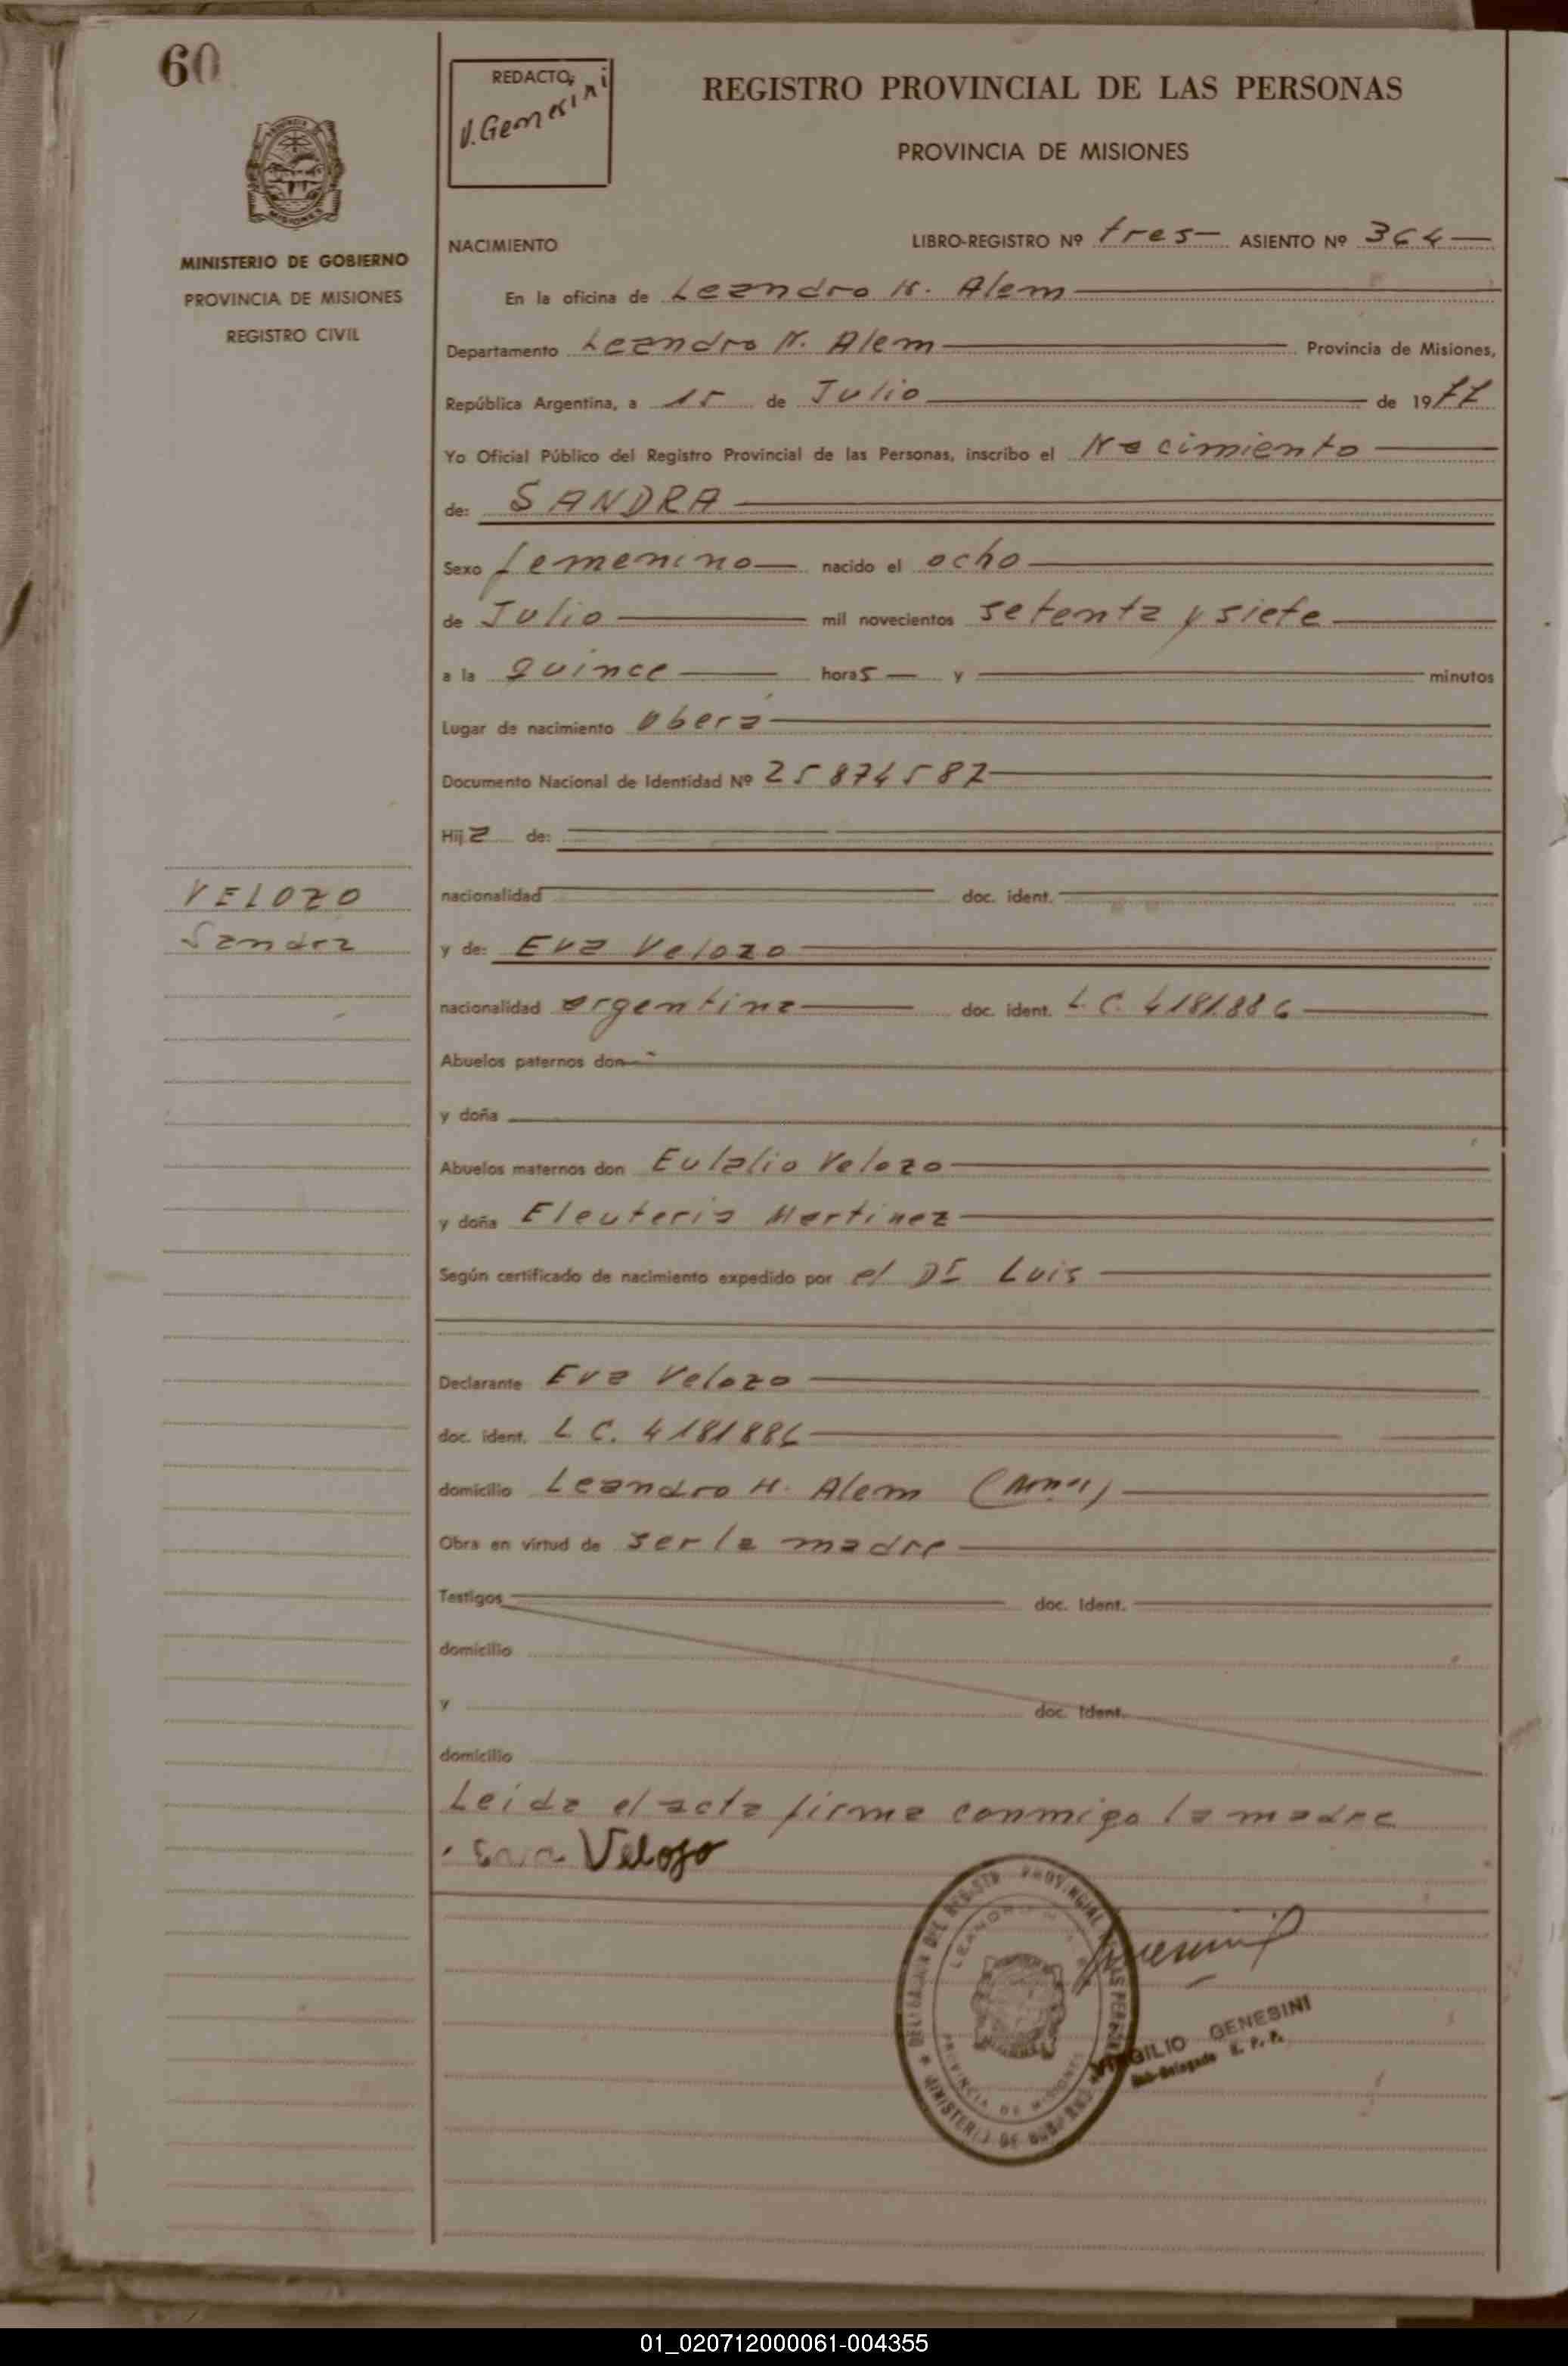 60
REDACTO:
V. Genesini
REGISTRO PROVINCIAL DE LAS PERSONAS
PROVINCIA DE MISIONES
MINISTERIO DE GOBIERNO
PROVINCIA DE MISIONES
REGISTRO CIVIL
NACIMIENTO LIBRO-REGISTRO Nº tres ASIENTO Nº 364
En la oficina de Leandro N. Alem
Departamento Leandro N. Alem Provincia de Misiones,
República Argentina, a 15 de Julio de 1977
Yo Oficial Público del Registro Provincial de las Personas, inscribo el Nacimiento
de: SANDRA
Sexo femenino nacido el ocho
de Julio mil novecientos setenta y siete
a la quince horas y minutos
Lugar de nacimiento Oberá
Documento Nacional de Identidad Nº 25874587
Hija de:
nacionalidad doc. ident.
VELOZO
Sandra
y de: Eva Velozo
nacionalidad argentina doc. ident. L.C. 4181886
Abuelos paternos don
y doña
Abuelos maternos don Eulalio Velozo
y doña Eleuteria Martinez
Según certificado de nacimiento expedido por el Luis
Declarante Eva Velozo
doc. ident. L C. 4181886
domicilio Leandro N. Alem
Obra en virtud de ser la madre
Testigos doc. Ident.
domicilio
y doc. Ident.
domicilio
Leida el acta firma conmigo la madre
Eva Velozo
DELEGACION DEL REGISTRO PROVINCIAL DE LAS PERSONAS
LEANDRO N. ALEM
PROVINCIA DE MISIONES
MINISTERIO DE GOBIERNO
VIRGILIO GENESINI
Sub-Delegado R. P. P.
01_020712000061-004355